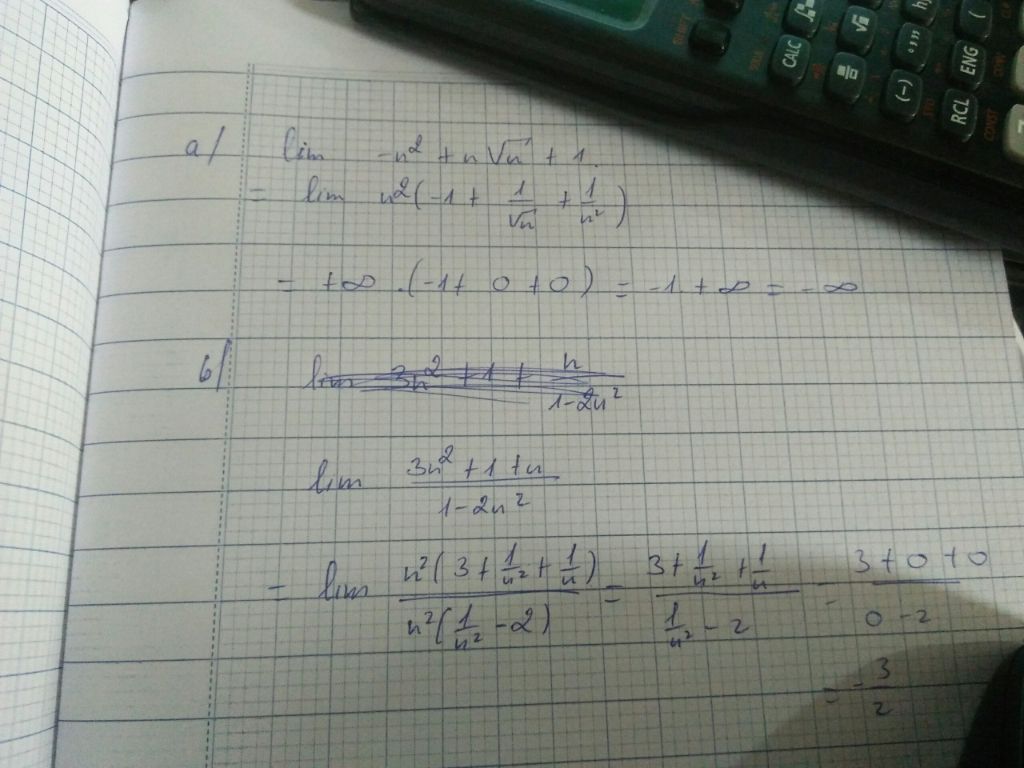 CALC √■ hyp (
■/□ °,,, ENG
(-) RCL CONST
a/ lim -n² + n√n + 1.
= lim n²(-1 + 1/√n + 1/n²)
= +∞ .(-1+ 0 +0) = -1. +∞ = -∞
b/ lim 3n² +1 + n/(1-2n²)
lim (3n² + 1 + n)/(1-2n²)
= lim n²(3 + 1/n² + 1/n)/n²(1/n² - 2) = (3 + 1/n² + 1/n)/(1/n² - 2) = (3+0+0)/(0-2)
= -3/2